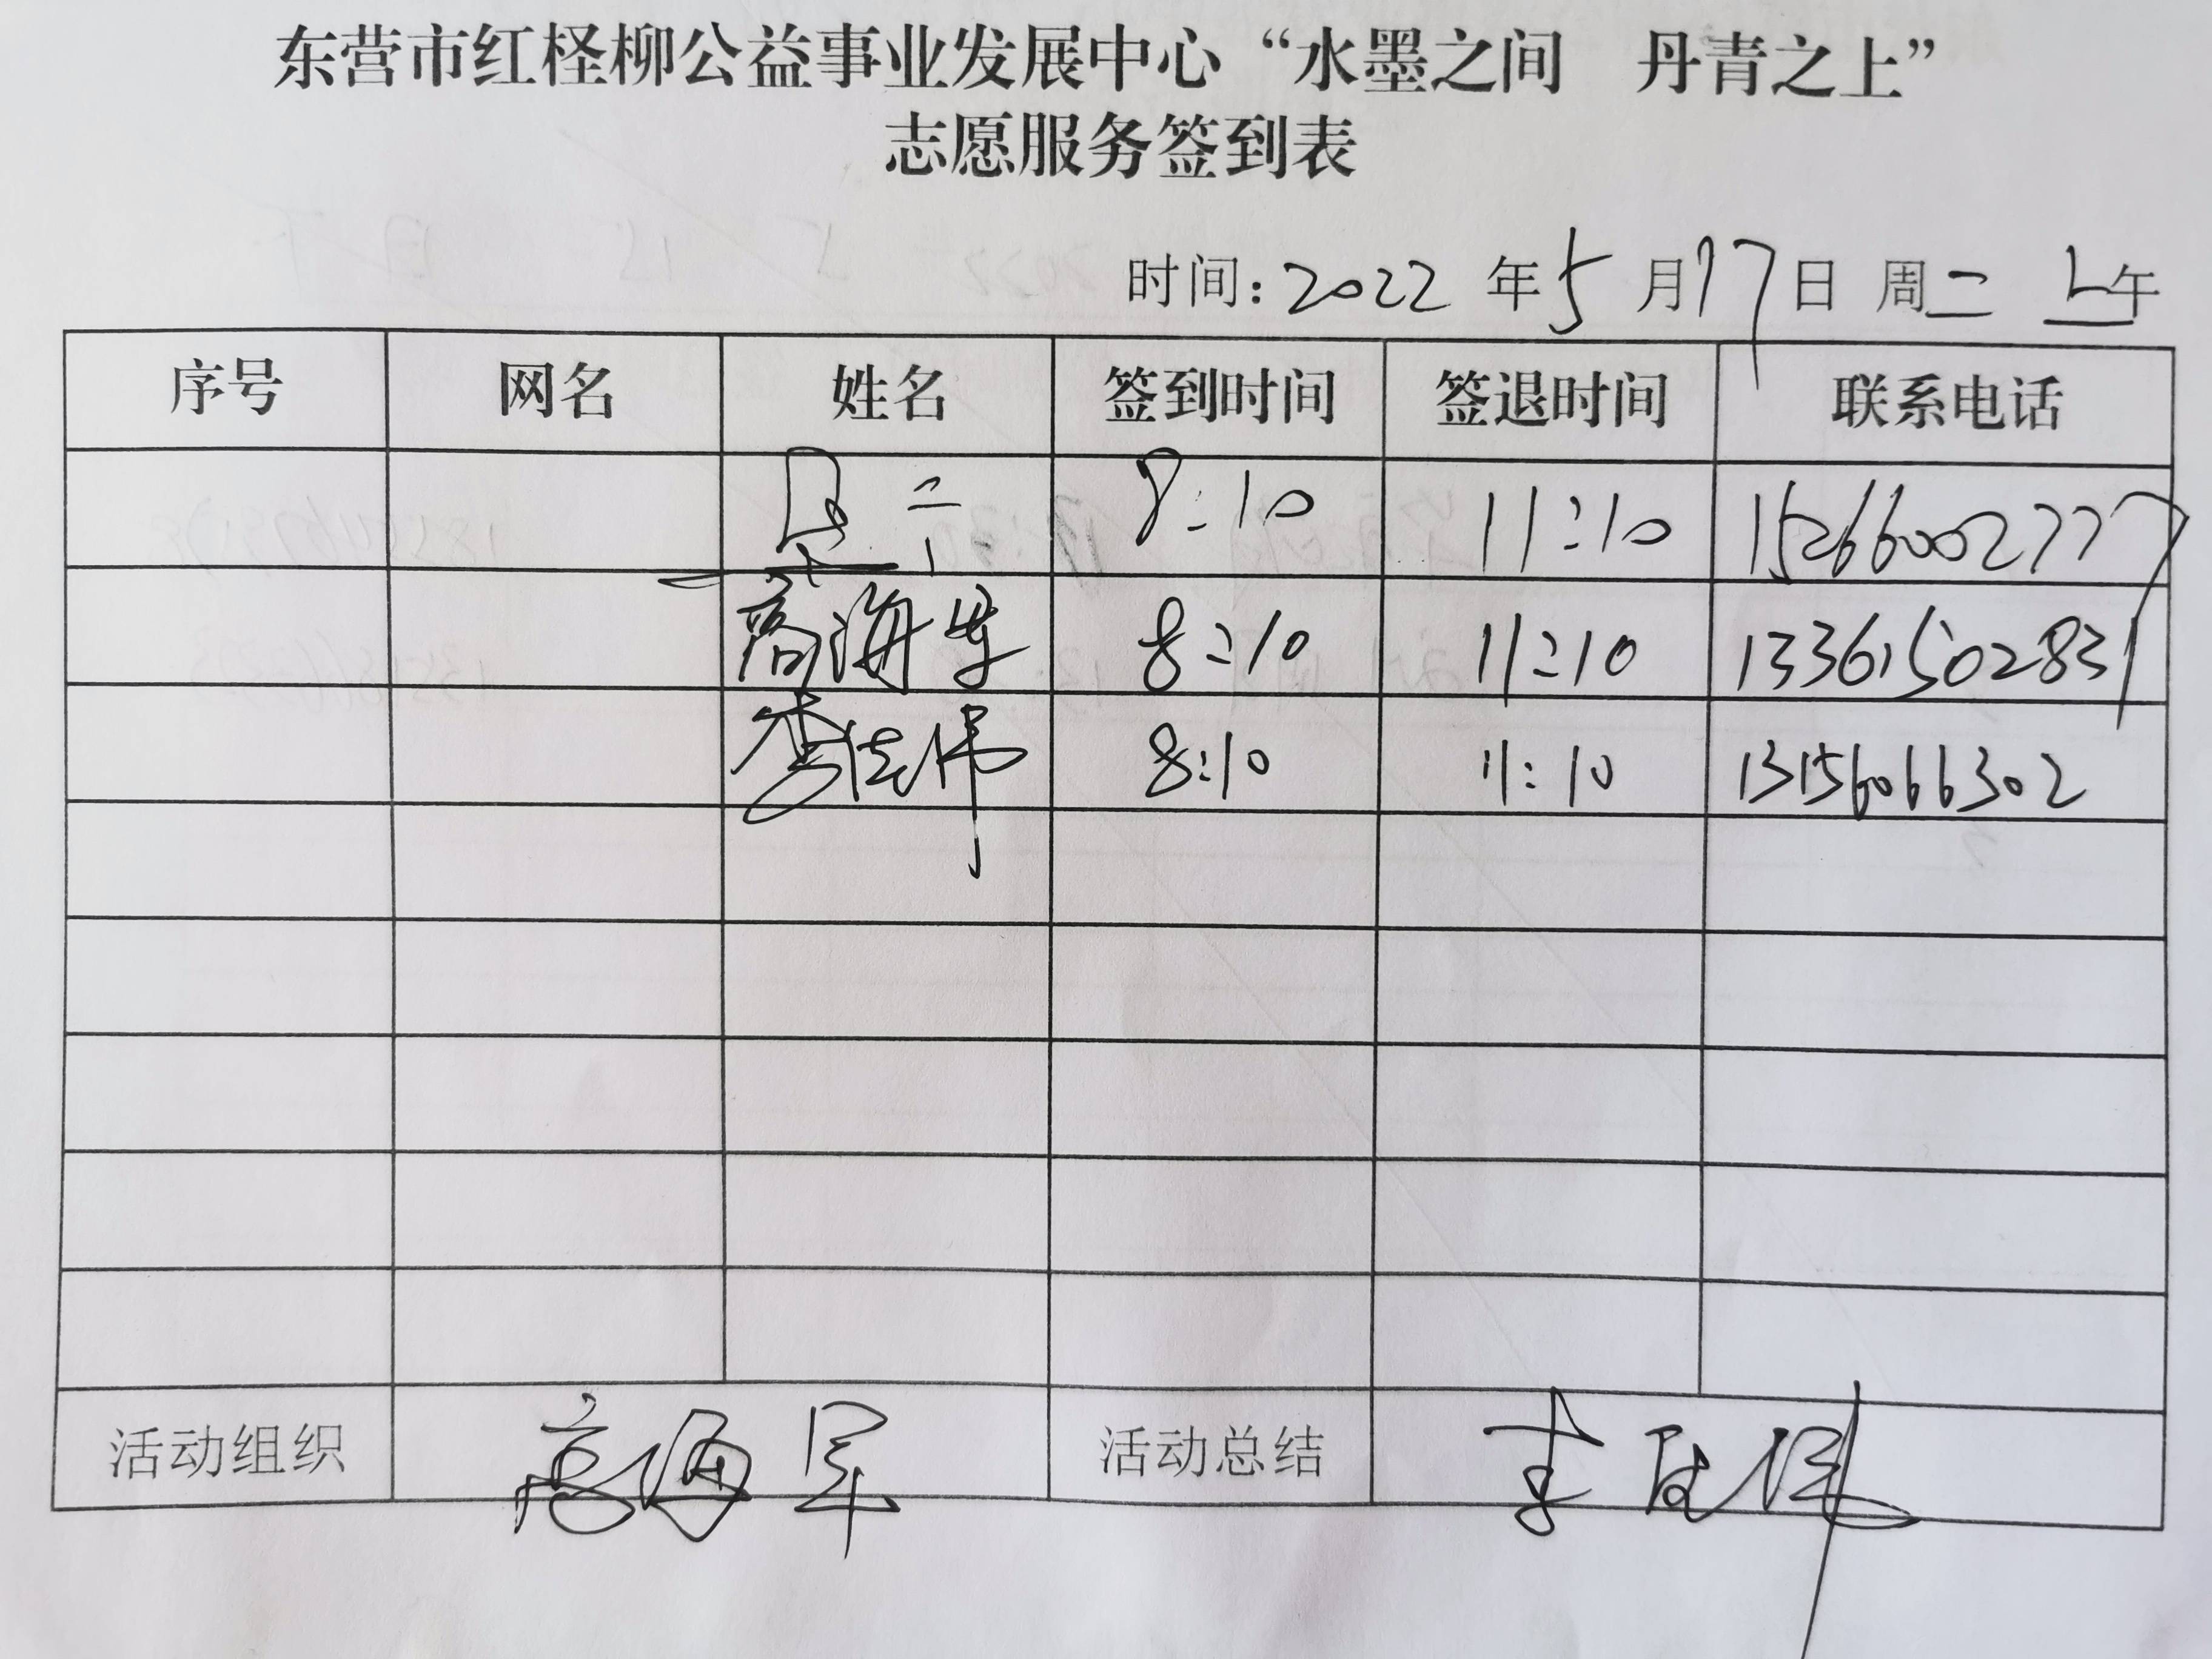 东营市红柽柳公益事业发展中心“水墨之间　丹青之上”
志愿服务签到表
时间：2022 年 5 月 17 日 周二 上午
序号 网名 姓名 签到时间 签退时间 联系电话
8:10 11:10 15266002777
高海 8:10 11:10 13361502831
李 伟 8:10 11:10 13156066302
活动组织 高海军 活动总结